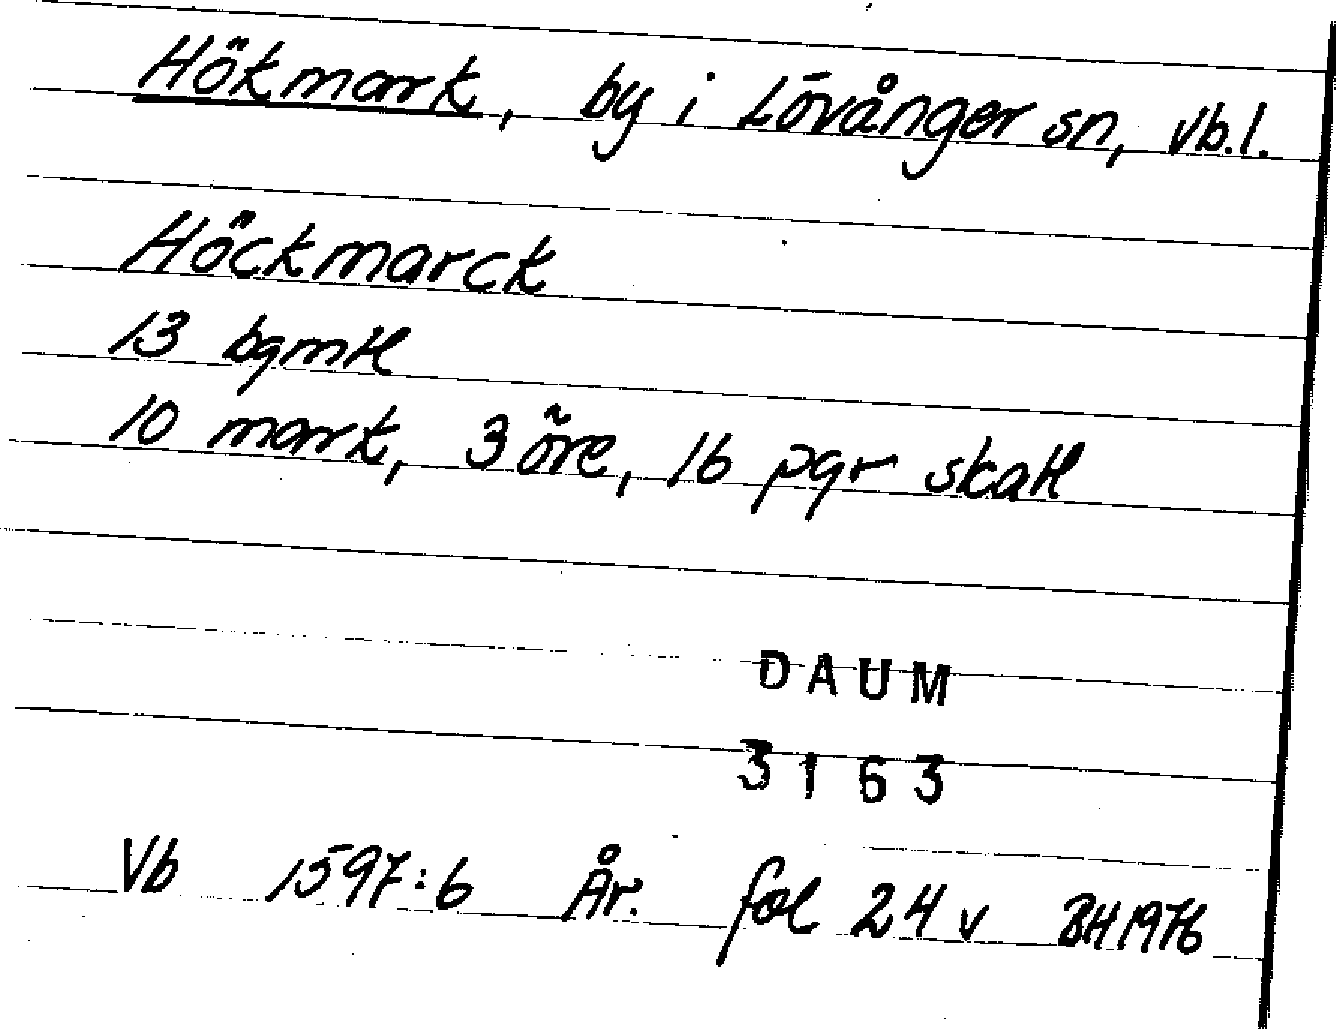 Hökmark, by i Lövånger sn, Vb.l.
Höckmarck
13 bgmtl
10 mark, 3 öre, 16 pgr skatt
DAUM
3163
Vb 1597:6 År. fol 24 v BH 1976